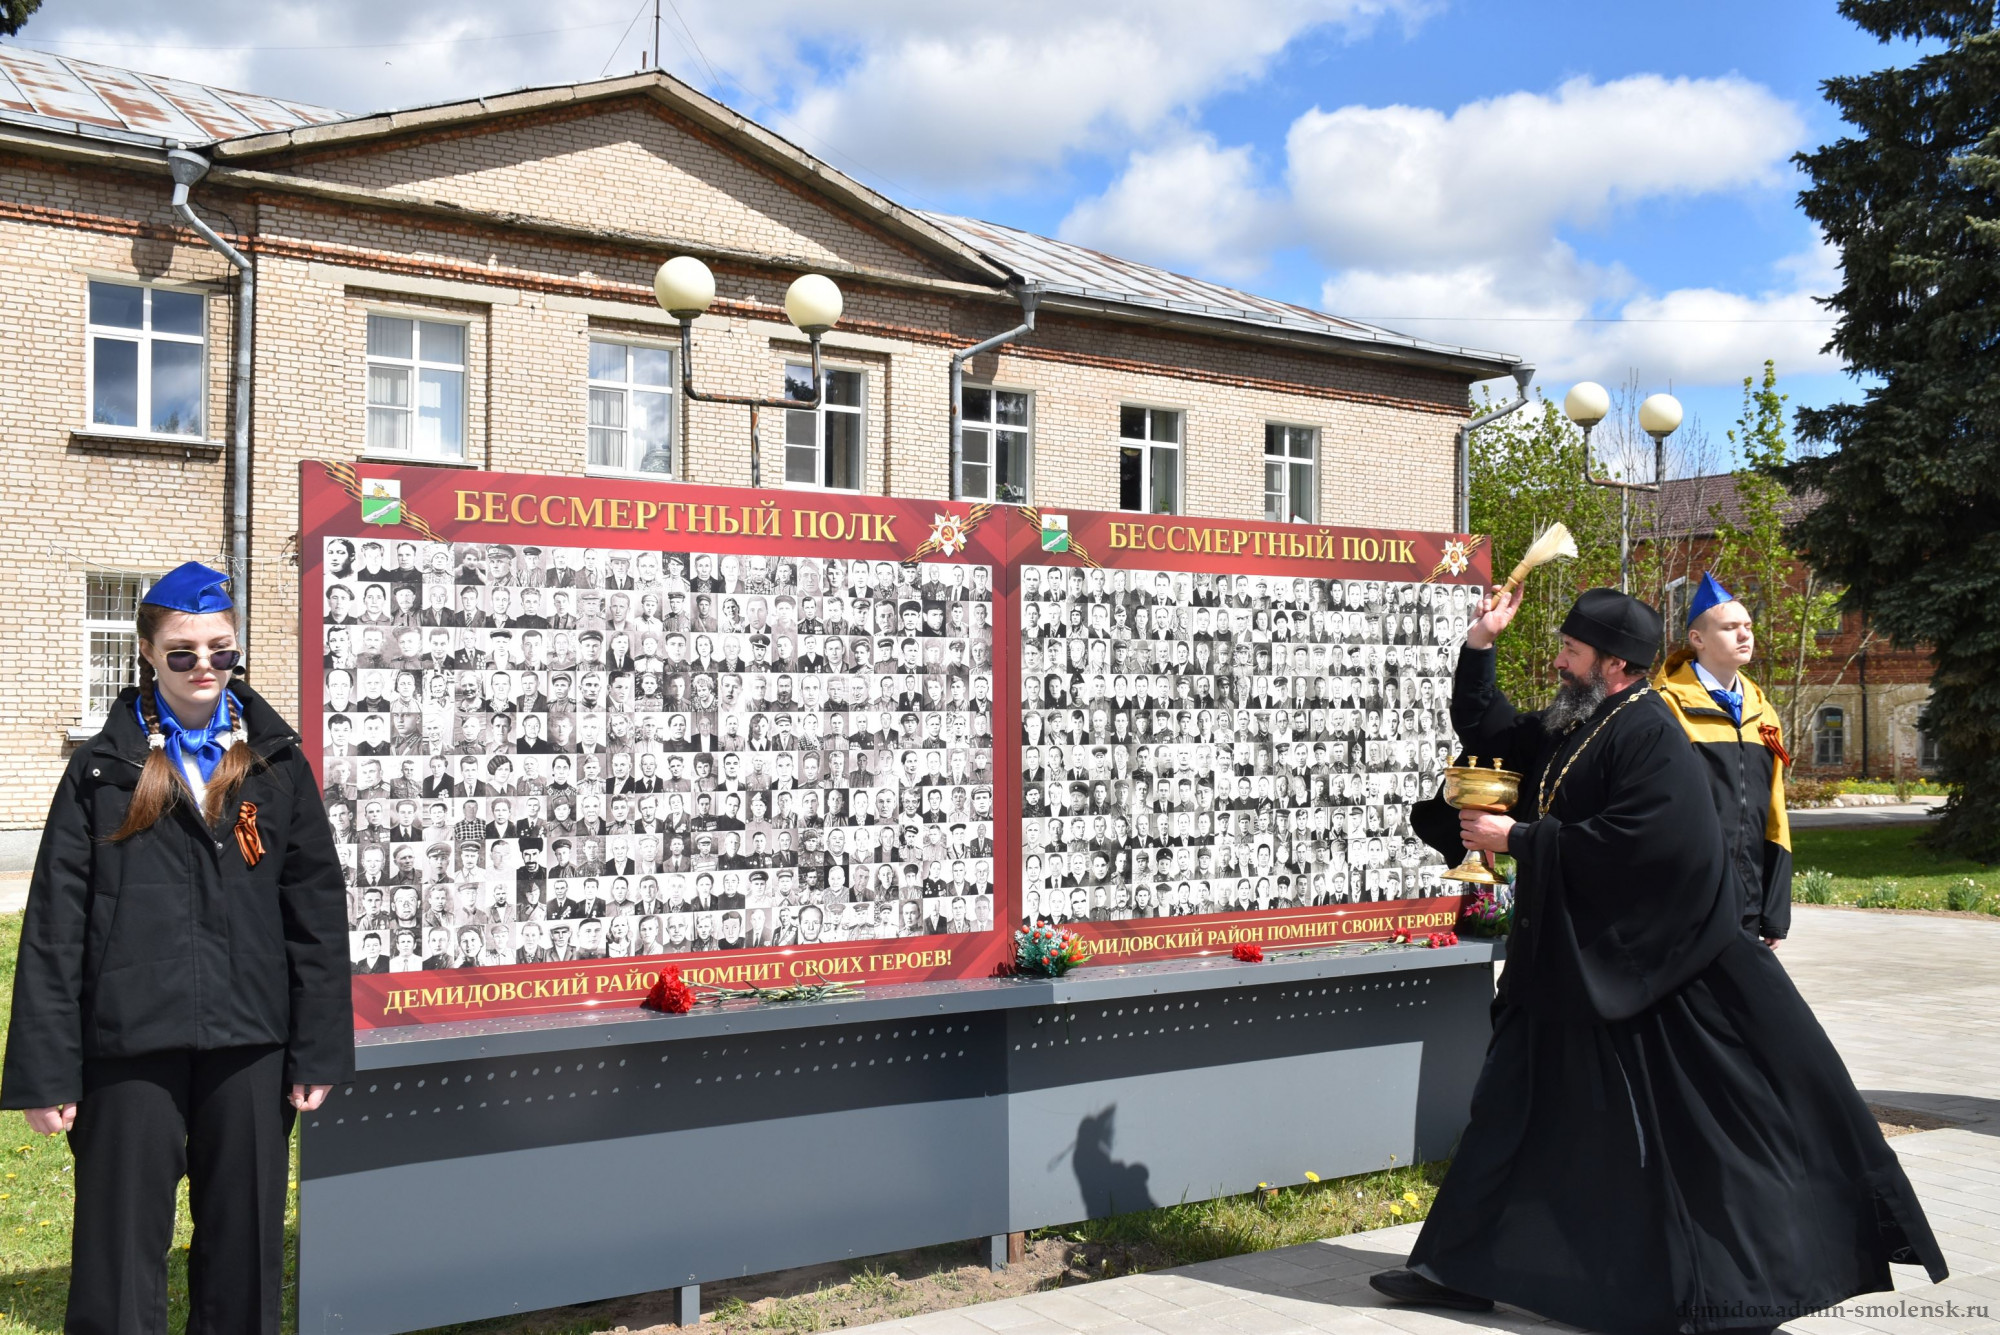 БЕССМЕРТНЫЙ ПОЛК
БЕССМЕРТНЫЙ ПОЛК
ДЕМИДОВСКИЙ РАЙОН ПОМНИТ СВОИХ ГЕРОЕВ!
ДЕМИДОВСКИЙ РАЙОН ПОМНИТ СВОИХ ГЕРОЕВ!
demidov.admin-smolensk.ru